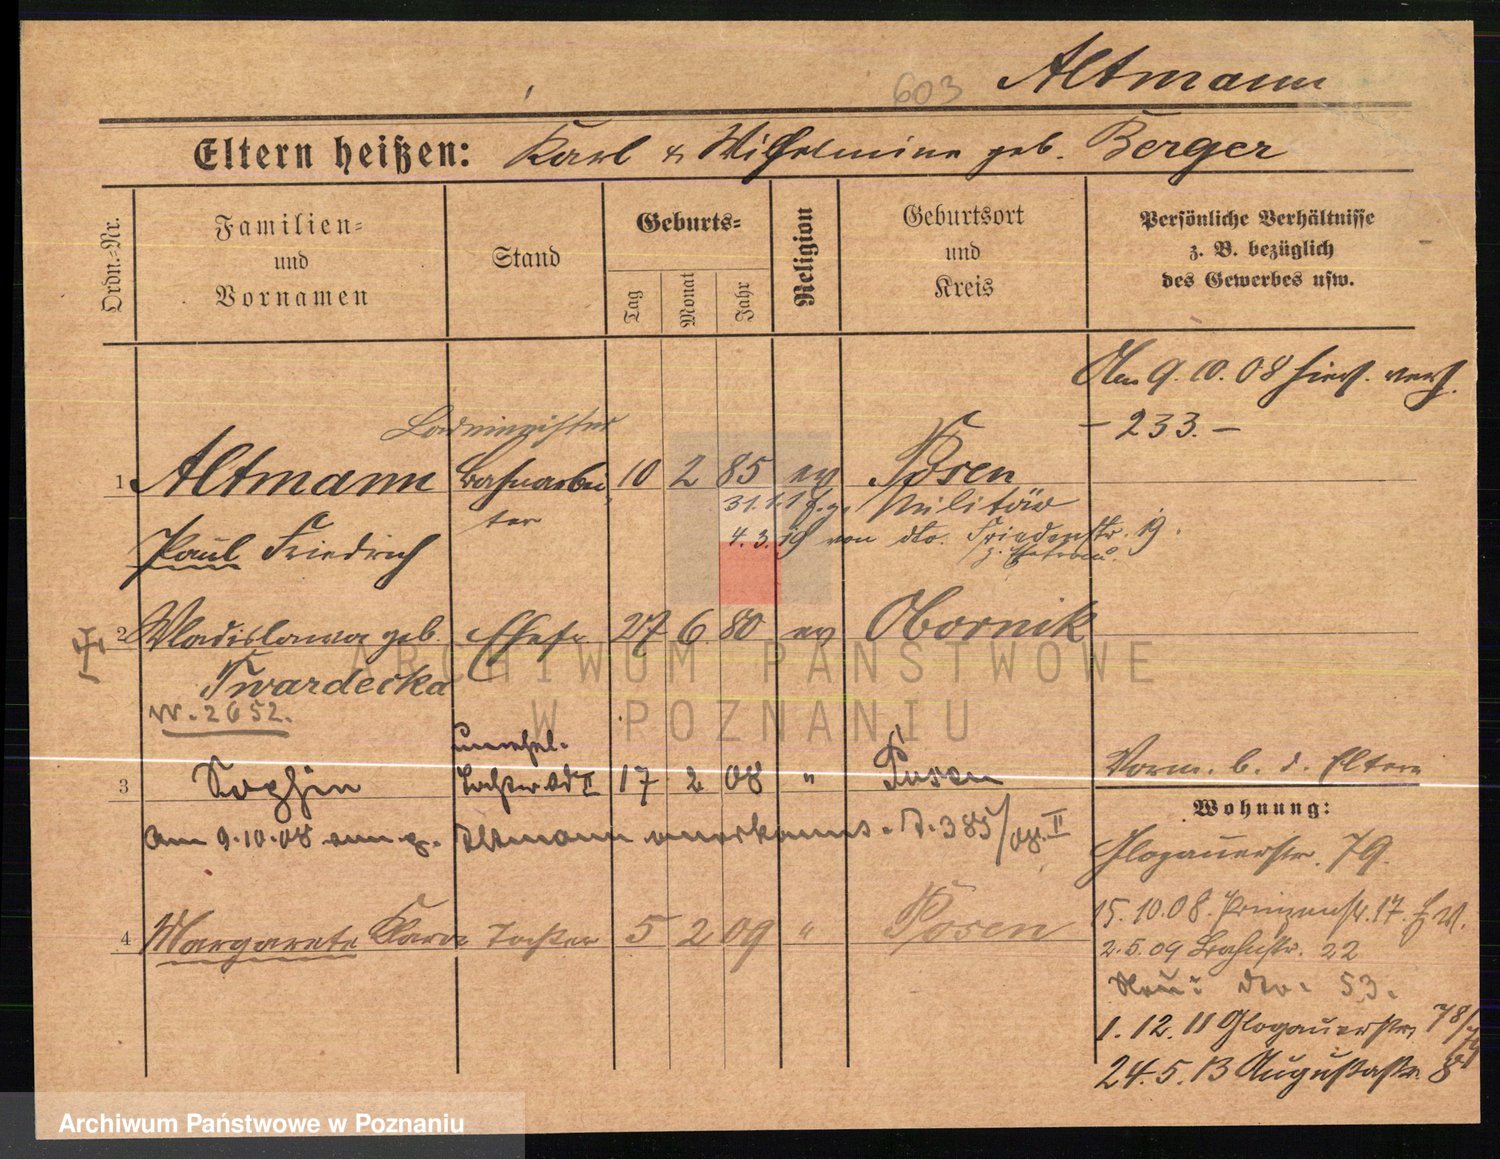 603 Altmann
Eltern heißen: Karl & Wilhelmine geb. Berger
Ordn.-Nr.
Familien-
und
Vornamen
Stand
Geburts-
Tag
Monat
Jahr
Religion
Geburtsort
und
Kreis
Persönliche Verhältnisse
z. B. bezüglich
des Gewerbes usw.
Am 9.10.08 hier verh.
- 233. -
Lademeister
1 Altmann Bahnarbei 10 2 85 ev Posen
ter
31.1.17 z. Militär
Paul Friedrich
4.3.19 von do. Friedenstr. 19.
2 Wladislawa geb. Ehefr. 27 6 80 ev Obornik
Twardecka
W. 2652.
unehel.
3 Sophie Tochter ad II 17 2 08 " Posen
Vorm. b. d. Eltern
am 9.10.08 von p. Altmann anerkannt. J. 385/08. II
Wohnung:
Glogauerstr. 79.
4 Margarete Klara Tochter 5 2 09 " Posen
15.10.08. Prinzenstr. 17.
2.5.09 Bahnstr. 22
Neu: do. 53.
1.12.11 Glogauerstr. 78/79
24.5.13 Augustastr. 8
ARCHIWUM PAŃSTWOWE
W POZNANIU
Archiwum Państwowe w Poznaniu